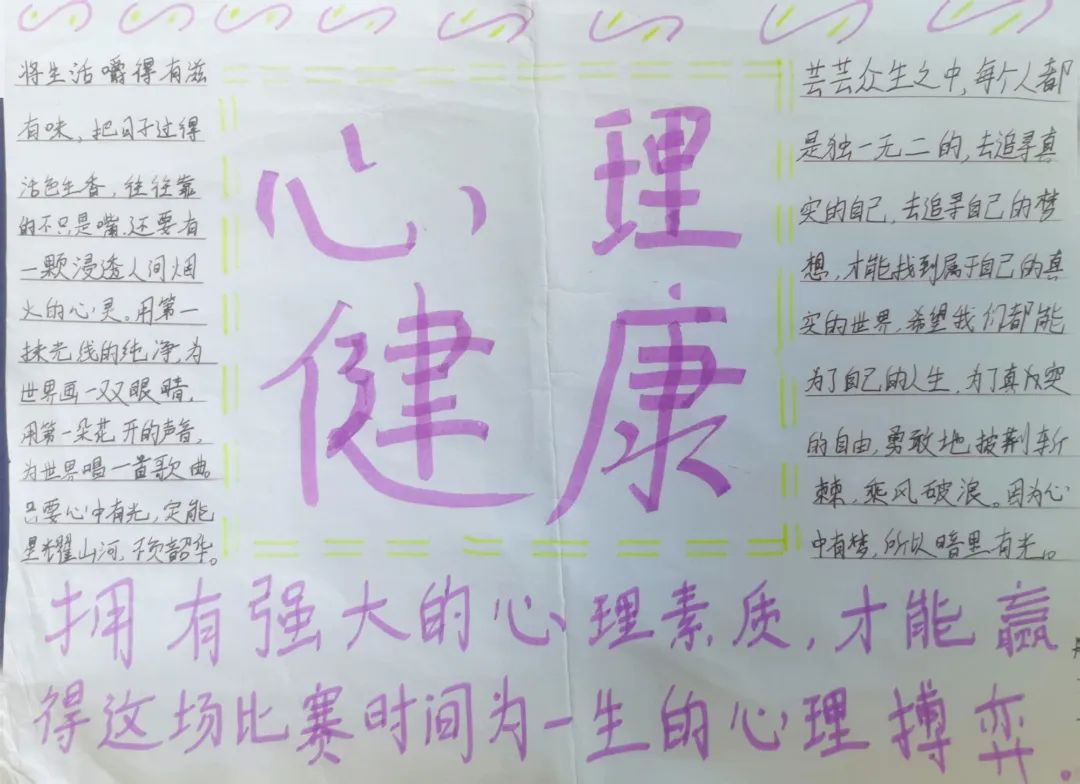 将生活嚼得有滋
有味，把日子过得
活色生香，往往靠
的不只是嘴，还要有
一颗浸透人间烟
火的心灵。用第一
抹光线的纯净，为
世界画一双眼睛，
用第一朵花开的声音，
为世界唱一首歌曲。
只要心中有光，定能
星耀山河，不负韶华。
心理
健康
芸芸众生之中，每个人都
是独一无二的，去追寻真
实的自己，去追寻自己的梦
想，才能找到属于自己的真
实的世界，希望我们都能
为了自己的人生，为了真实
的自由，勇敢地披荆斩
棘，乘风破浪。因为心
中有梦，所以暗里有光。
拥有强大的心理素质，才能赢
得这场比赛时间为一生的心理搏弈.